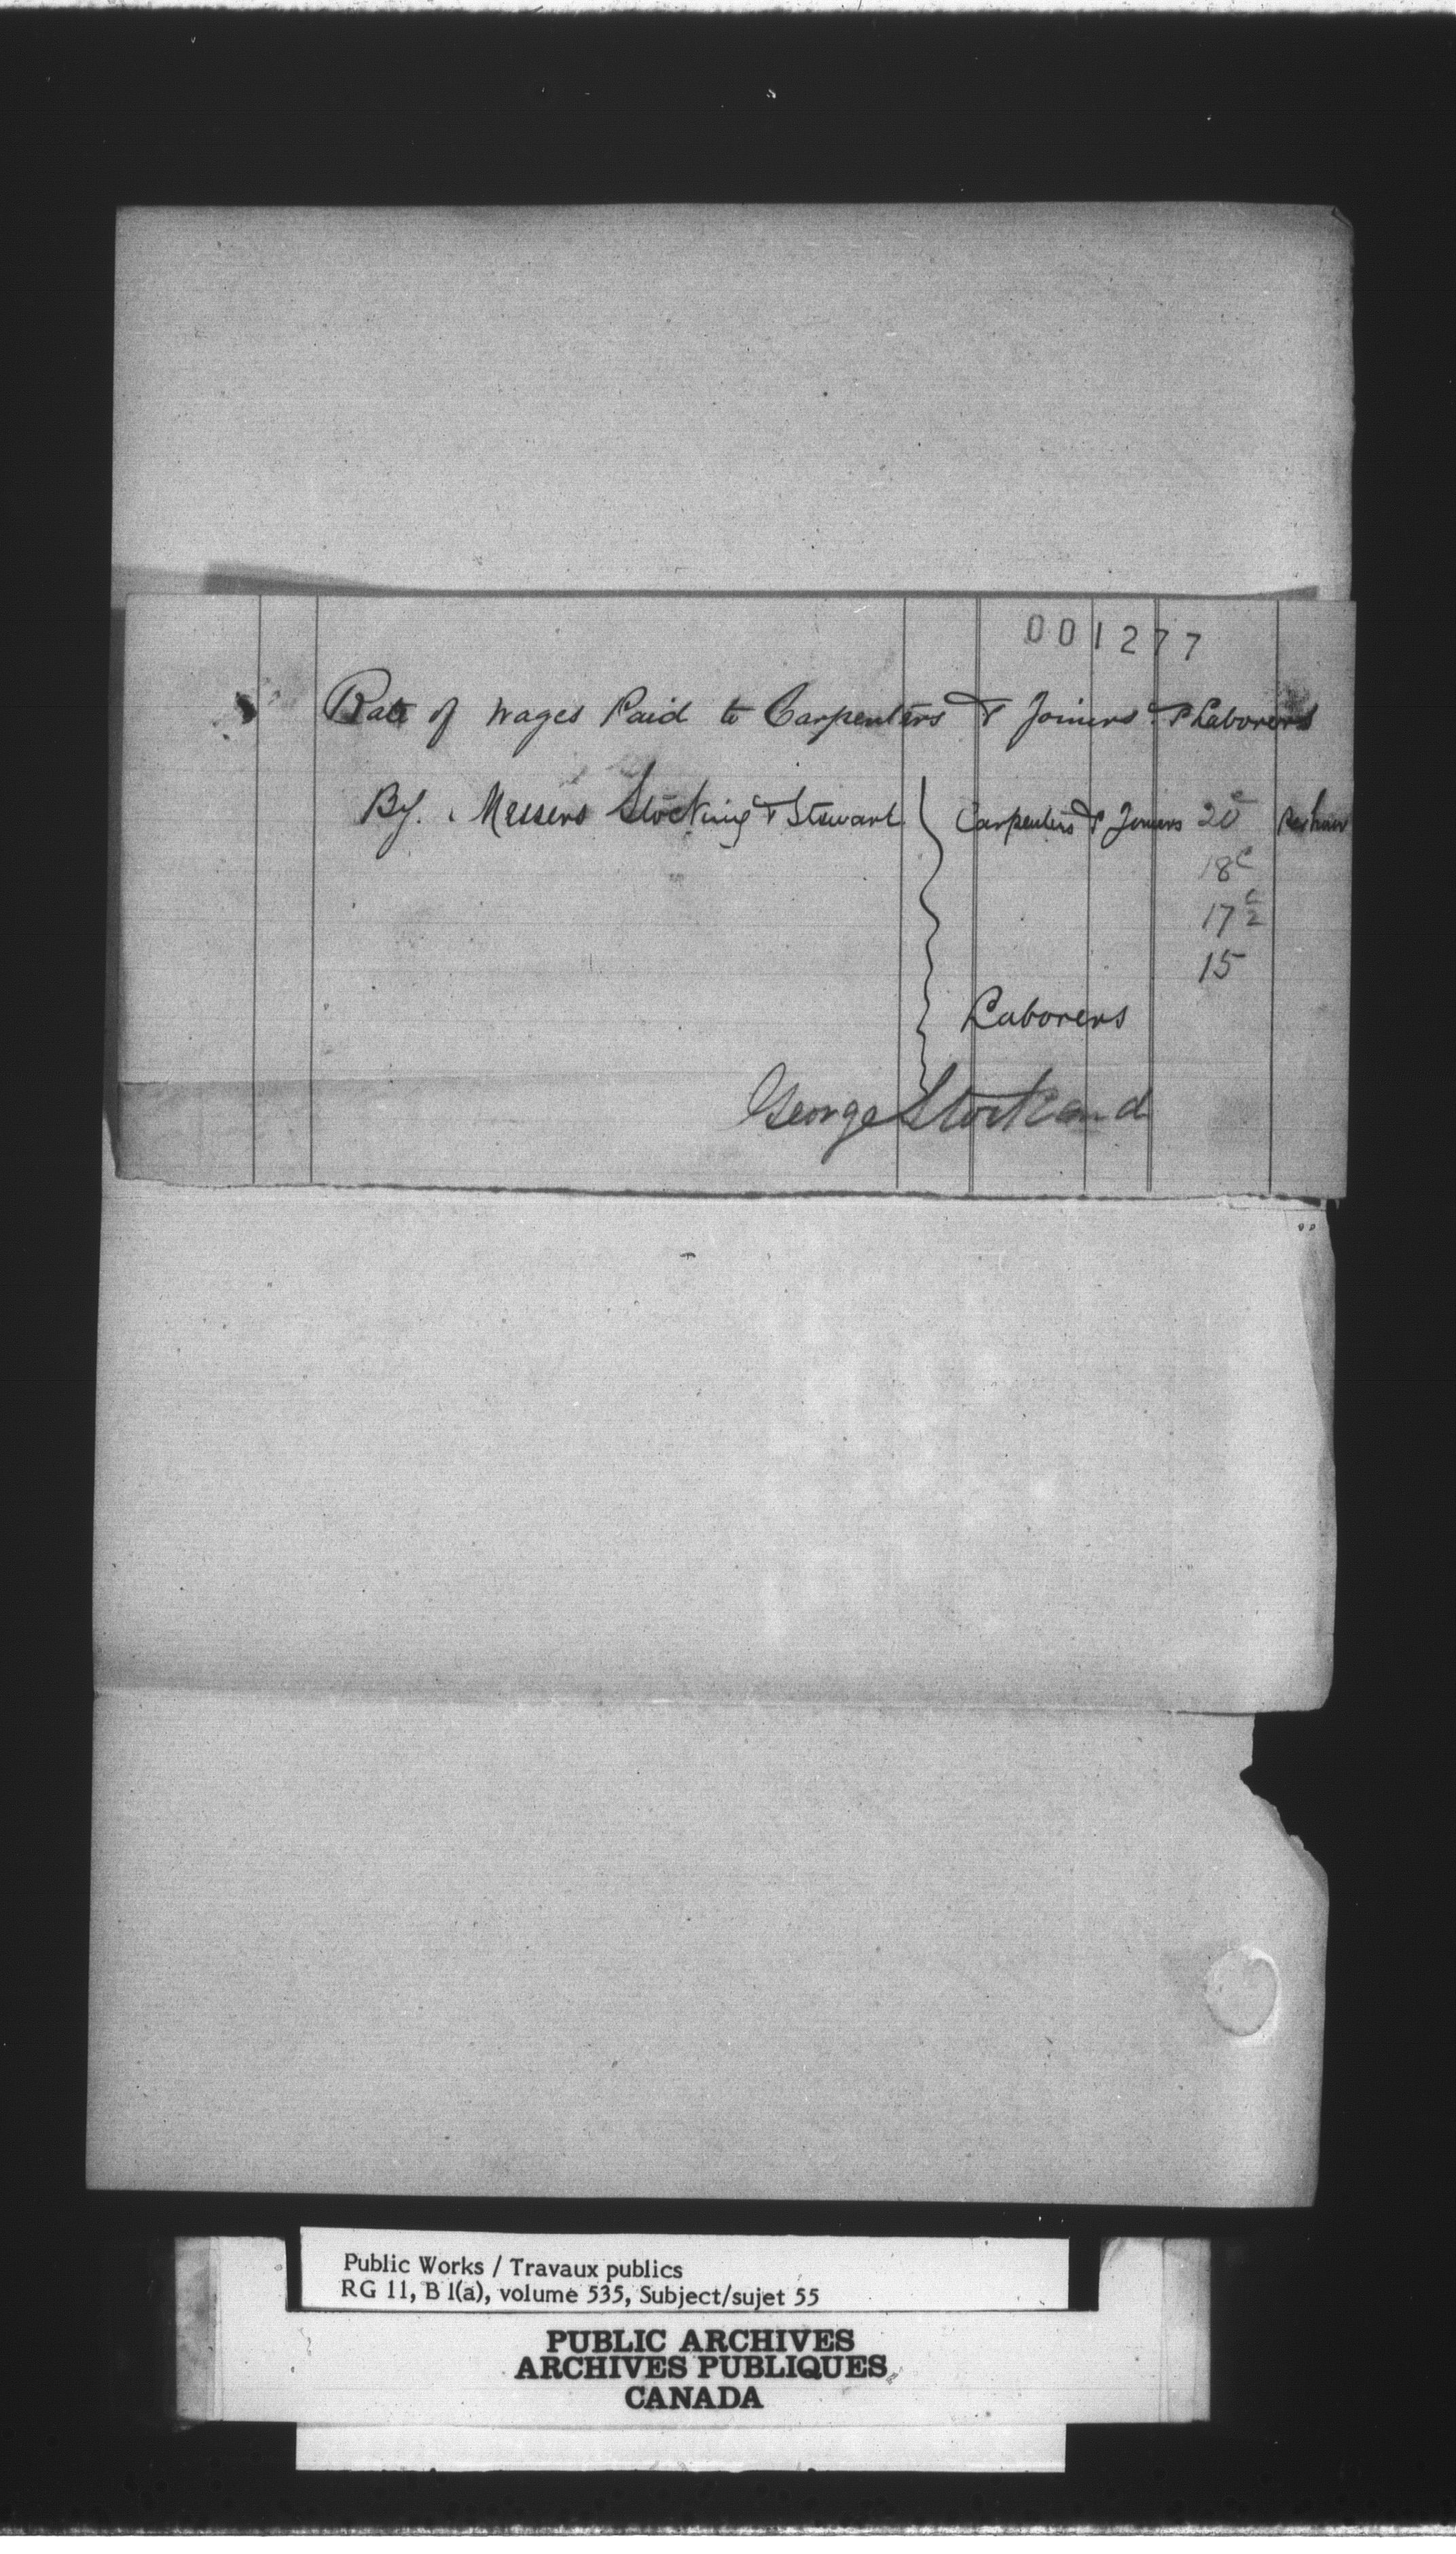 001277
Rate of Wages Paid to Carpenters & Joiners & Laborers
By. Messers Stocking & Stewart } Carpenters & Joiners 20c per hour
18c
17 c/2
15
Laborers
George Stockand
Public Works / Travaux publics
RG 11, B 1(a), volume 535, Subject/sujet 55
PUBLIC ARCHIVES
ARCHIVES PUBLIQUES
CANADA